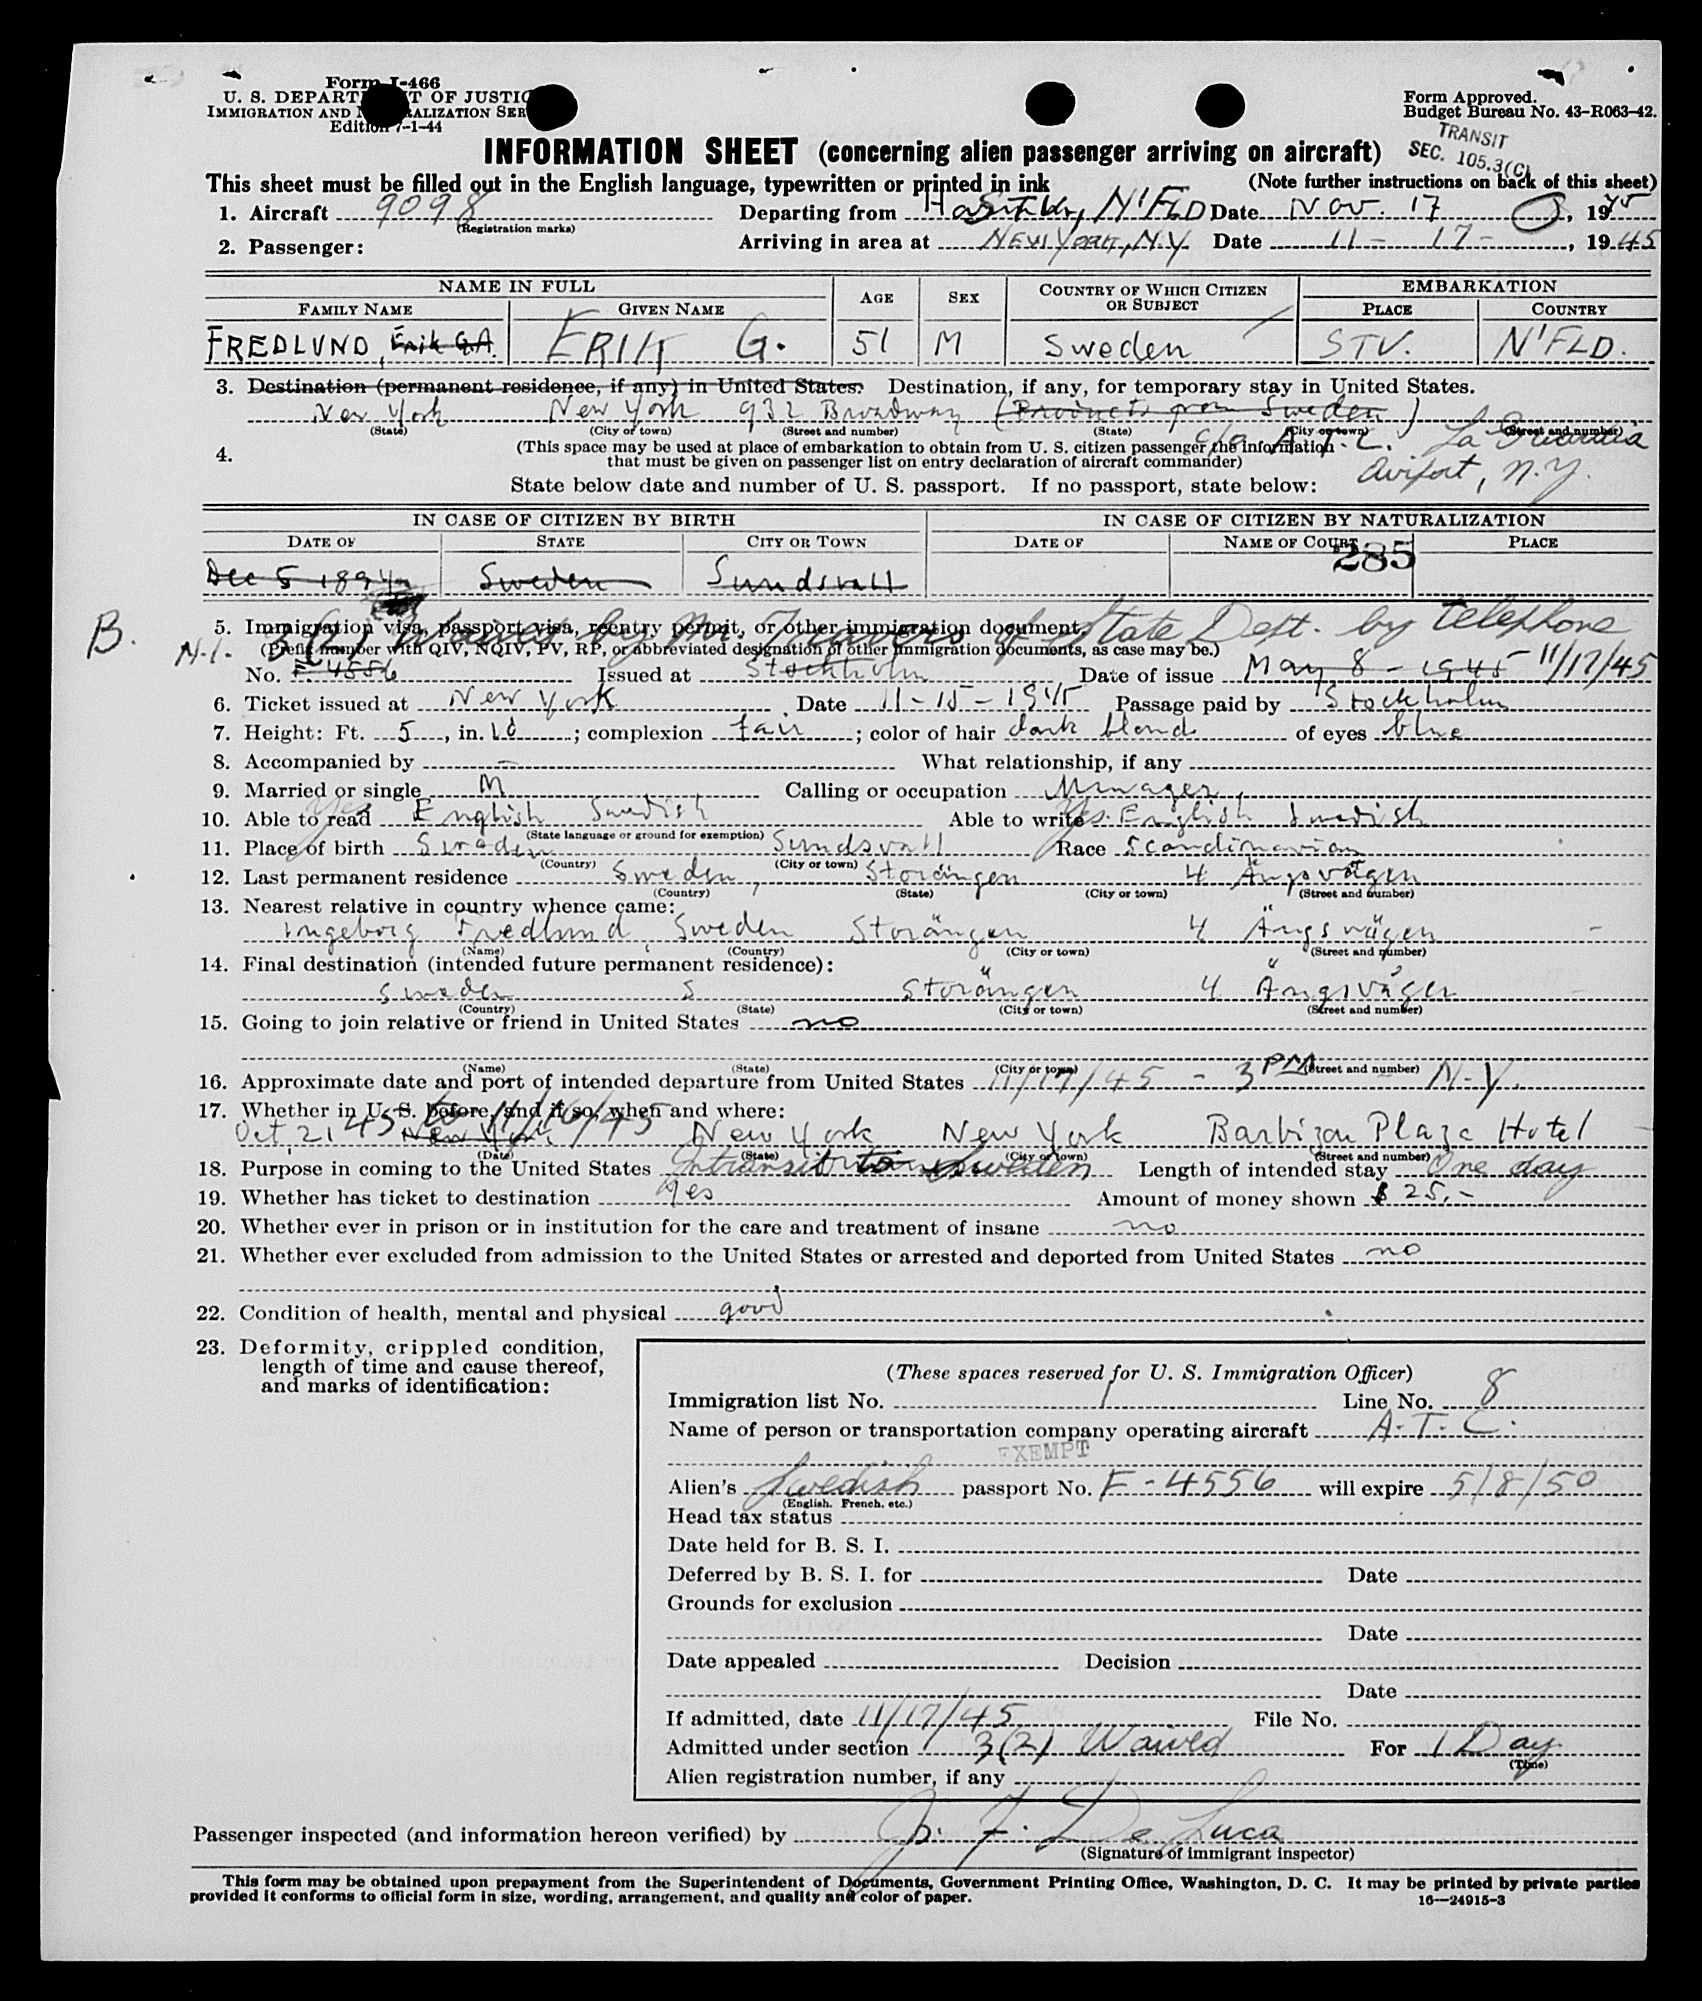 Form I-466
U. S. DEPARTMENT OF JUSTICE
IMMIGRATION AND NATURALIZATION SER
Edition 7-1-44
Form Approved.
Budget Bureau No. 43-R063-42.
TRANSIT
SEC. 105.3(C)
INFORMATION SHEET (concerning alien passenger arriving on aircraft)
This sheet must be filled out in the English language, typewritten or printed in ink (Note further instructions on back of this sheet)
1. Aircraft 9098 Departing from N'FLD Date Nov. 17, 1945
(Registration marks)
2. Passenger: Arriving in area at NEW YORK, N.Y. Date 11-17-, 1945
NAME IN FULL AGE SEX COUNTRY OF WHICH CITIZEN OR SUBJECT EMBARKATION
FAMILY NAME GIVEN NAME PLACE COUNTRY
FREDLUND, Erik G.A. ERIK G. 51 M Sweden STV. N'FLD.
3. Destination (permanent residence, if any) in United States. Destination, if any, for temporary stay in United States.
New York New York 932 Broadway (Products from Sweden)
(State) (City or town) (Street and number) (State) (City or town) (Street and number)
c/o A.T.C. La Guardia Airport, N.Y.
4. (This space may be used at place of embarkation to obtain from U. S. citizen passenger the information
that must be given on passenger list on entry declaration of aircraft commander)
State below date and number of U. S. passport. If no passport, state below:
IN CASE OF CITIZEN BY BIRTH IN CASE OF CITIZEN BY NATURALIZATION
DATE OF STATE CITY OR TOWN DATE OF NAME OF COURT PLACE
285
Dec 5 1894 Sweden Sundsvall
B.
5. Immigration visa, passport visa, reentry permit, or other immigration document.
N.I. 3(2) Waived by Mr. Travers of State Dept. by telephone
(Prefix number with QIV, NQIV, PV, RP, or abbreviated designation of other immigration documents, as case may be.)
No. F. 4556 Issued at Stockholm Date of issue May 8 - 1945 11/17/45
6. Ticket issued at New York. Date 11-15-1945 Passage paid by Stockholm
7. Height: Ft. 5, in. 10; complexion fair; color of hair dark blond of eyes blue
8. Accompanied by — What relationship, if any
9. Married or single M Calling or occupation Manager
10. Able to read Yes English Swedish Able to write Yes. English Swedish
(State language or ground for exemption)
11. Place of birth Sweden Sundsvall Race Scandinavian
(Country) (City or town)
12. Last permanent residence Sweden, Storängen 4 Ängsvägen
(Country) (State) (City or town) (Street and number)
13. Nearest relative in country whence came:
Ingeborg Fredlund, Sweden Storängen 4 Ängsvägen -
(Name) (Country) (City or town) (Street and number)
14. Final destination (intended future permanent residence):
Sweden S Storängen 4 Ängsvägen -
(Country) (State) (City or town) (Street and number)
15. Going to join relative or friend in United States no
(Name) (State) (City or town) (Street and number)
16. Approximate date and port of intended departure from United States 11/17/45 - 3 PM N.Y.
17. Whether in U. S. before, and if so, when and where:
Oct 21 45 to 11/16/45 New York New York New York Barbizon Plaza Hotel -
(Date) (State) (City or town) (Street and number)
18. Purpose in coming to the United States Intransit to Sweden Length of intended stay One day
19. Whether has ticket to destination yes Amount of money shown $ 25.-
20. Whether ever in prison or in institution for the care and treatment of insane no
21. Whether ever excluded from admission to the United States or arrested and deported from United States no
22. Condition of health, mental and physical good
23. Deformity, crippled condition,
length of time and cause thereof,
and marks of identification:
(These spaces reserved for U. S. Immigration Officer)
Immigration list No. 1 Line No. 8
Name of person or transportation company operating aircraft A.T.C.
EXEMPT
Alien's Swedish passport No. F-4556 will expire 5/8/50
(English, French, etc.)
Head tax status
Date held for B. S. I.
Deferred by B. S. I. for Date
Grounds for exclusion
Date
Date appealed Decision
Date
If admitted, date 11/17/45 File No.
Admitted under section 3(2) Waived For 1 Day
(Time)
Alien registration number, if any
Passenger inspected (and information hereon verified) by J. F. De Luca
(Signature of immigrant inspector)
This form may be obtained upon prepayment from the Superintendent of Documents, Government Printing Office, Washington, D. C. It may be printed by private parties
provided it conforms to official form in size, wording, arrangement, and quality and color of paper.
16—24915-3